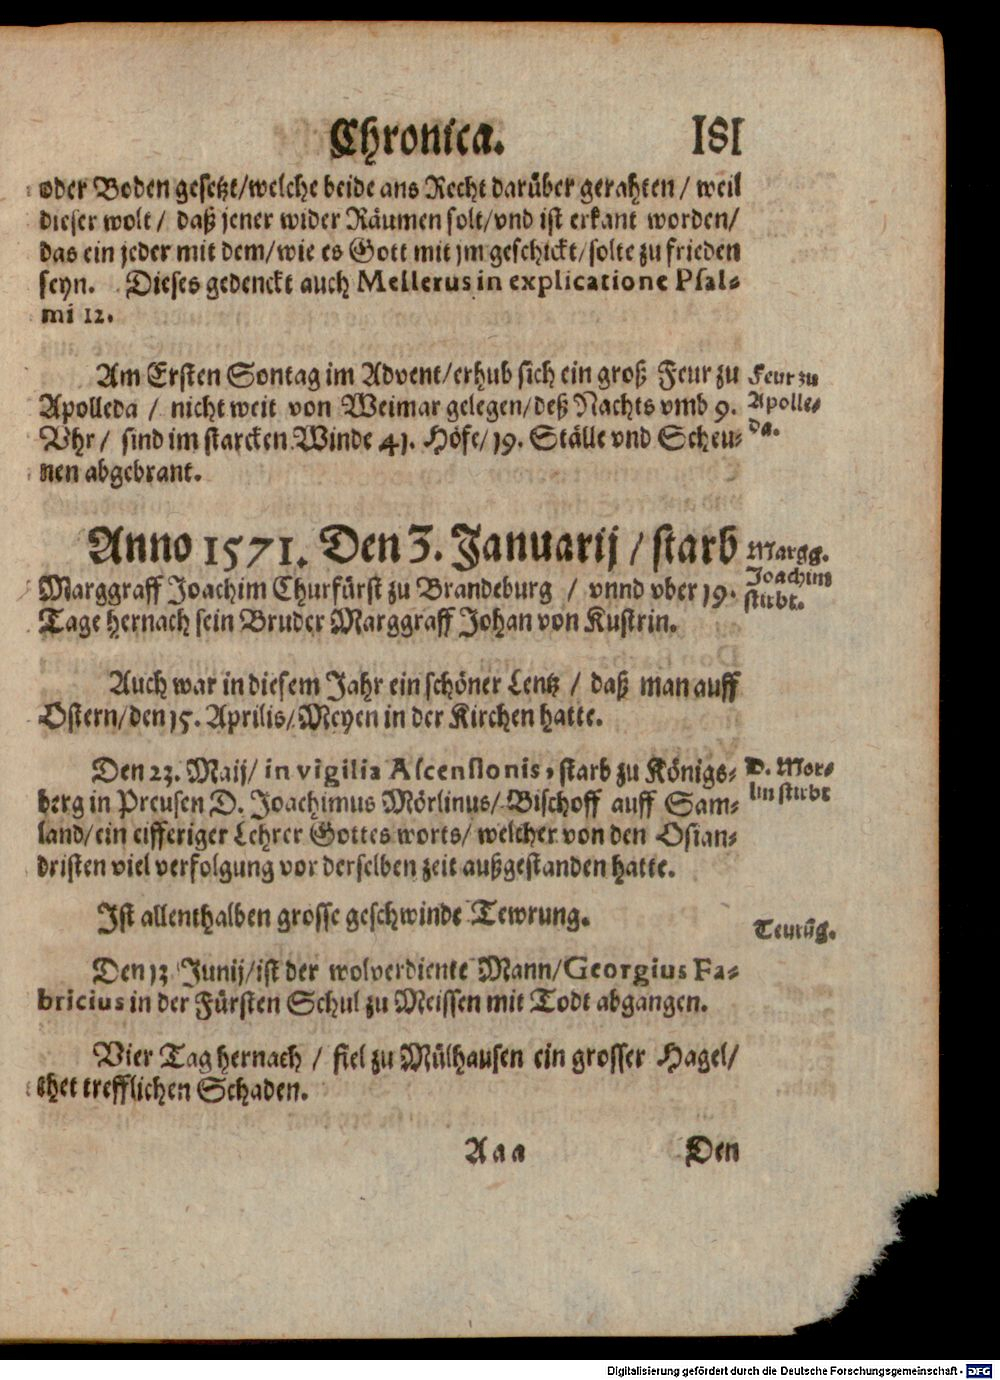 Chronica. 181
oder Boden gesetzt/welche beide ans Recht darüber gerahten / weil
dieser wolt / daß jener wider Räumen solt/vnd ist erkant worden/
das ein jeder mit dem/wie es Gott mit jm geschickt/solte zu frieden
seyn. Dieses gedenckt auch Mellerus in explicatione Psal-
mi 12.
Am Ersten Sontag im Advent/erhub sich ein groß Feur zu
Apolleda / nicht weit von Weimar gelegen/deß Nachts vmb 9.
Vhr / sind im starcken Winde 41. Höfe/19. Ställe vnd Scheu-
nen abgebrant.
Feur zu
Apolle-
da.
Anno 1571. Den 3. Januarij / starb
Marggraff Joachim Churfürst zu Brandeburg / vnnd vber 19.
Tage hernach sein Bruder Marggraff Johan von Kustrin.
Margg.
Joachim
stirbt.
Auch war in diesem Jahr ein schöner Lentz / daß man auff
Ostern/den 15. Aprilis/Meyen in der Kirchen hatte.
Den 23. Maij/ in vigilia Ascensionis, starb zu Königs-
berg in Preusen D. Joachimus Mörlinus/ Bischoff auff Sam-
land/ein eifferiger Lehrer Gottes worts/ welcher von den Osian-
dristen viel verfolgung vor derselben zeit außgestanden hatte.
D. Mor-
lin stirbt
Ist allenthalben grosse geschwinde Tewrung.
Teurūg.
Den 13 Junij/ist der wolverdiente Mann/Georgius Fa-
bricius in der Fürsten Schul zu Meissen mit Todt abgangen.
Vier Tag hernach / fiel zu Mülhausen ein grosser Hagel/
thet trefflichen Schaden.
Aaa Den
Digitalisierung gefördert durch die Deutsche Forschungsgemeinschaft - DFG